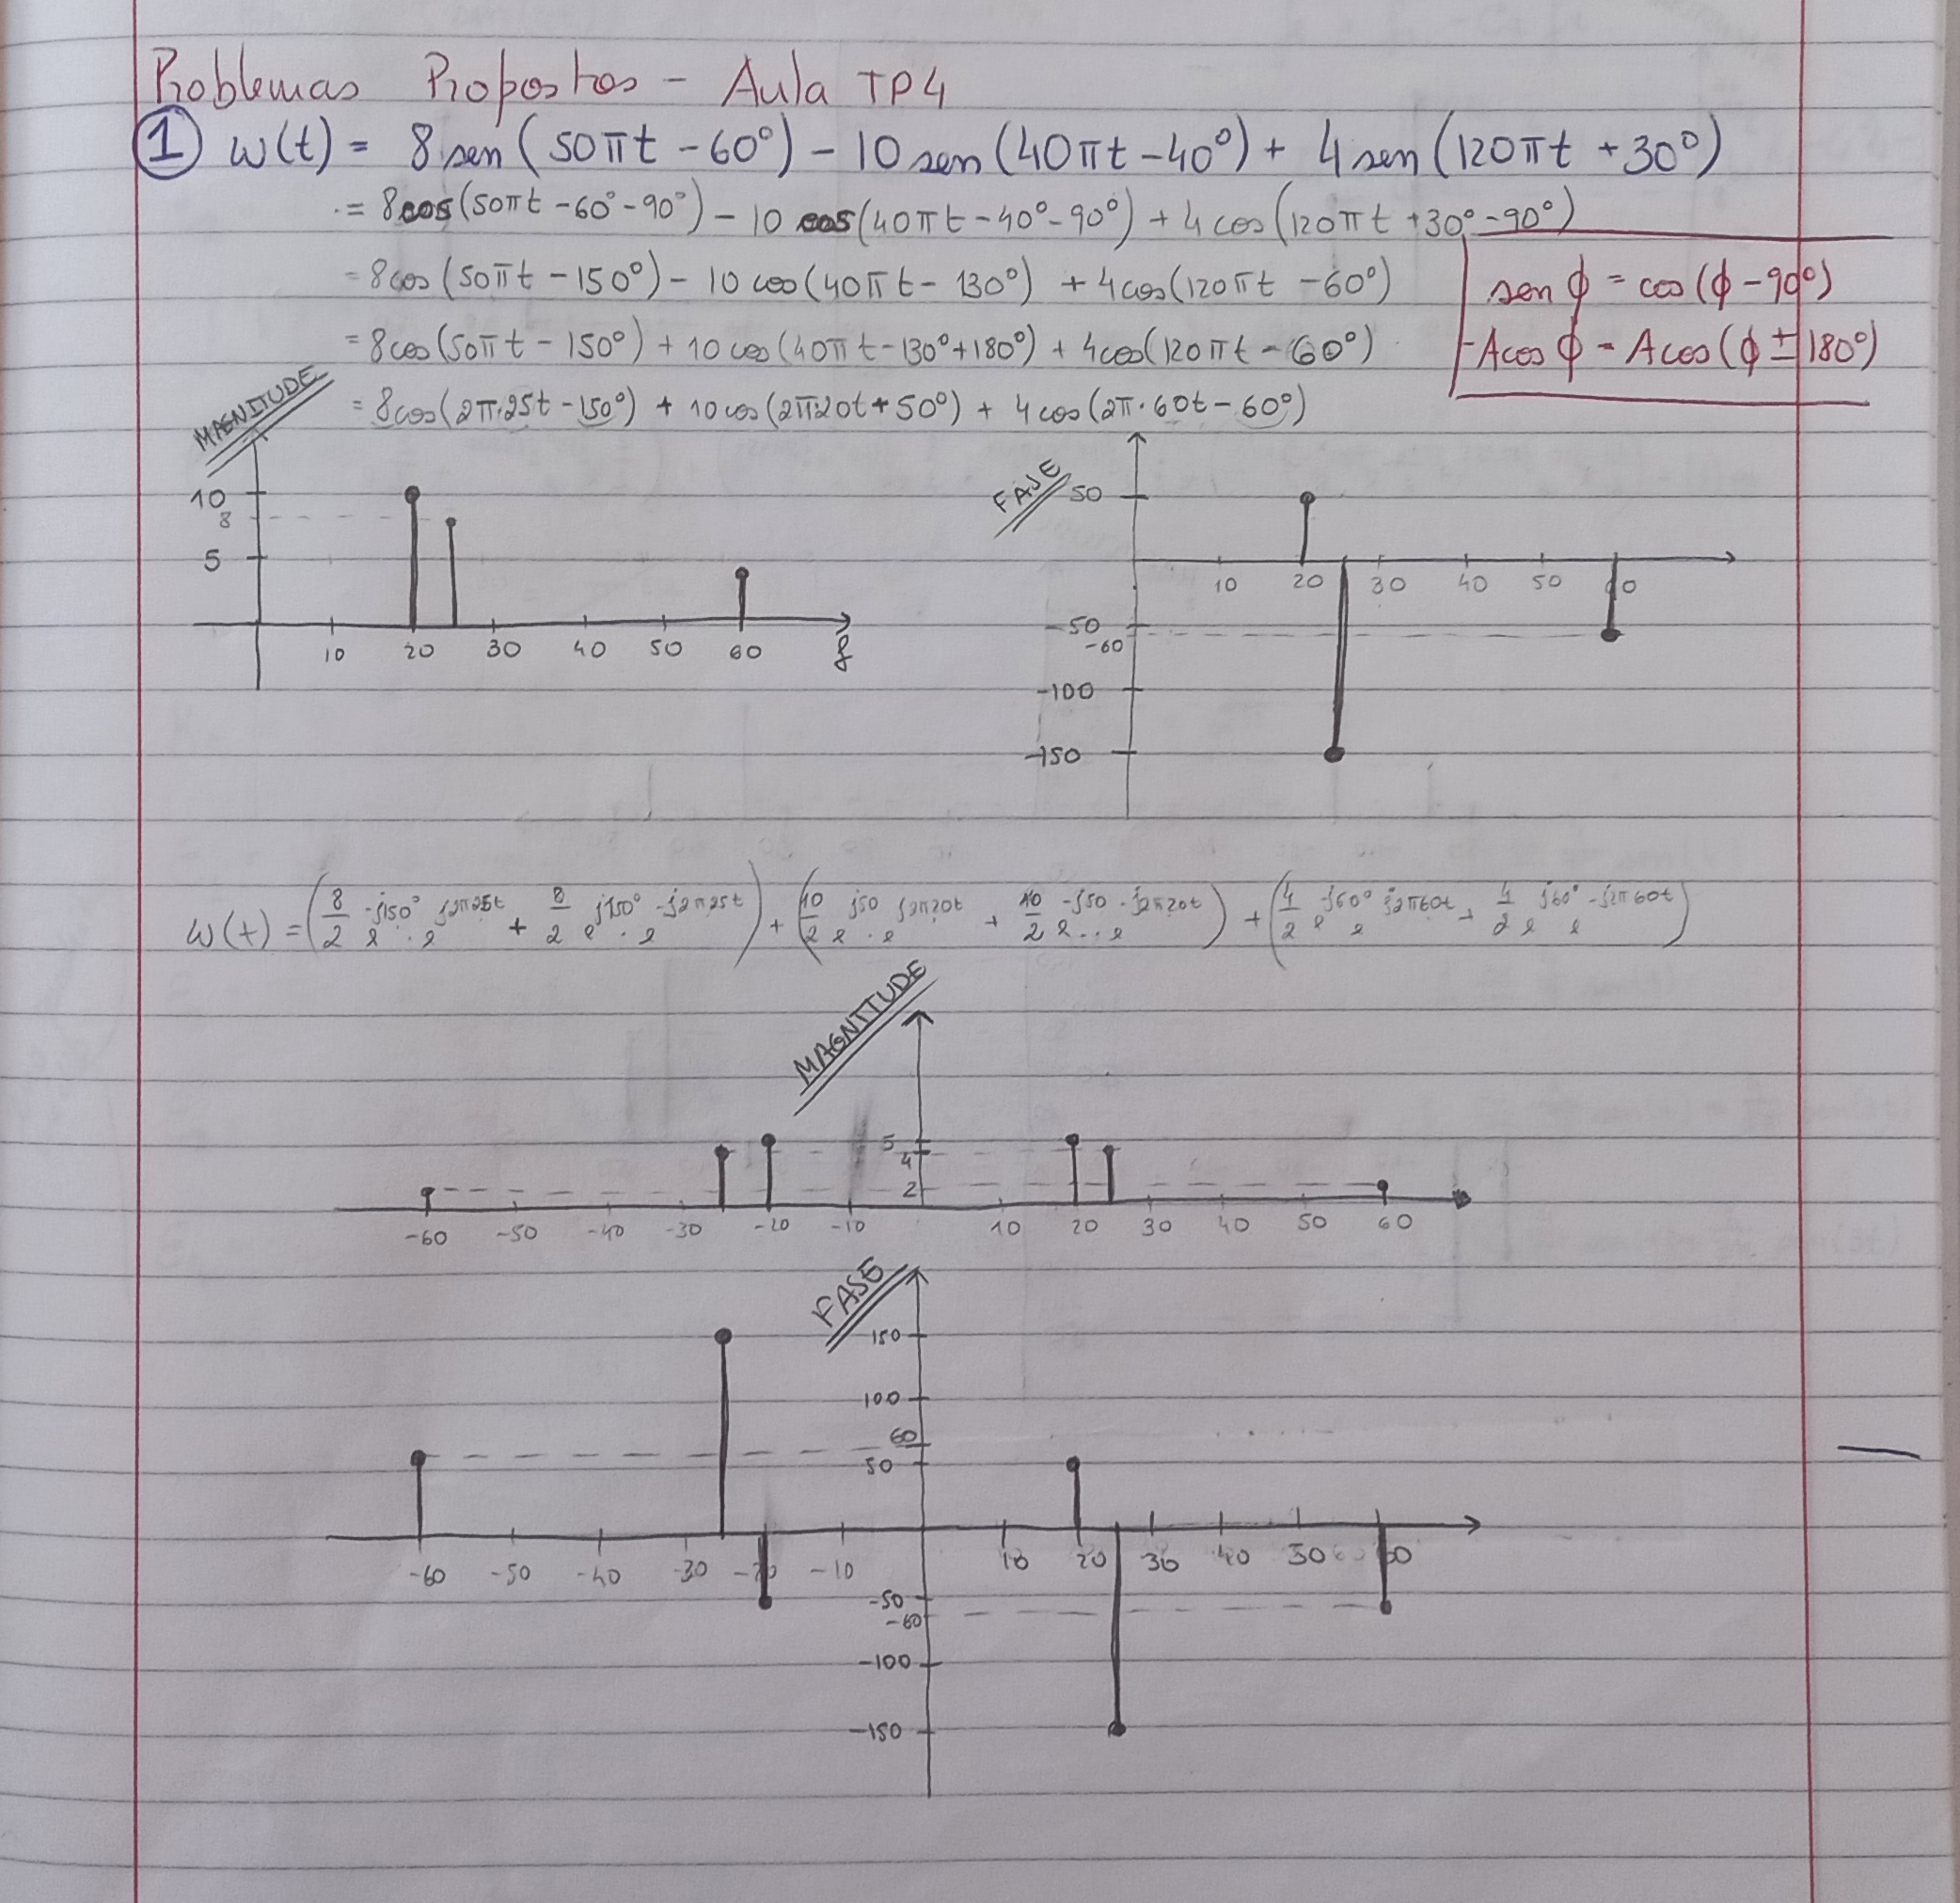 Problemas Propostos - Aula TP4
① w(t) = 8 sen(50πt - 60°) - 10 sen(40πt - 40°) + 4 sen(120πt + 30°)
= 8 cos(50πt - 60° - 90°) - 10 cos(40πt - 40° - 90°) + 4 cos(120πt + 30° - 90°)
= 8 cos(50πt - 150°) - 10 cos(40πt - 130°) + 4 cos(120πt - 60°)
sen ϕ = cos(ϕ - 90°)
= 8 cos(50πt - 150°) + 10 cos(40πt - 130° + 180°) + 4 cos(120πt - 60°)
-A cos ϕ = A cos(ϕ ± 180°)
= 8 cos(2π·25t - 150°) + 10 cos(2π20t + 50°) + 4 cos(2π·60t - 60°)
MAGNITUDE
10
8
5
10 20 30 40 50 60 f
FASE
50
10 20 30 40 50 60
-50
-60
-100
-150
w(t) = (8/2 e^-j150° · e^j2π25t + 8/2 e^j150° · e^-j2π25t) + (10/2 e^j50 · e^j2π20t + 10/2 e^-j50 · e^-j2π20t) + (4/2 e^-j60° e^j2π60t + 4/2 e^j60° e^-j2π60t)
MAGNITUDE
5
4
2
-60 -50 -40 -30 -20 -10 10 20 30 40 50 60
FASE
150
100
60
50
-60 -50 -40 -30 -20 -10 10 20 30 40 50 60
-50
-60
-100
-150